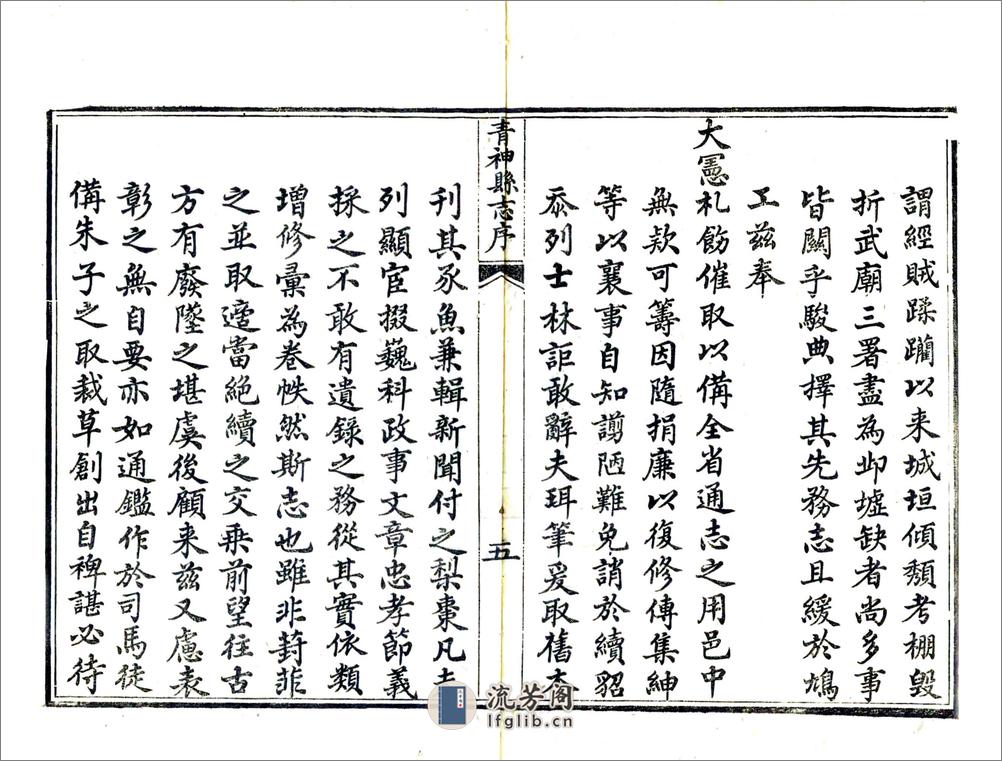 謂經賊蹂躪以来城垣傾頽考棚毁
折武廟三署盡為邱墟缺者尚多事
皆關乎駿典擇其先務志且緩於鳩
工兹奉
大憲札飭催取以備全省通志之用邑中
無欵可籌因隨捐廉以復修傳集紳
等以襄事自知譾陋難免誚於續貂
忝列士林詎敢辭夫珥筆爰取舊本
青神縣志序
五
刊其豕魚兼輯新聞付之梨棗凡夫
列顯宦掇巍科政事文章忠孝節義
採之不敢有遺錄之務從其實依類
增修彙為卷帙然斯志也雖非葑菲
之並取適當絕續之交乗前望往古
方有廢墜之堪虞後顧来兹又慮表
彰之無自要亦如通鑑作於司馬徒
備朱子之取裁草創出自裨諶必待
流芳阁
lfglib.cn